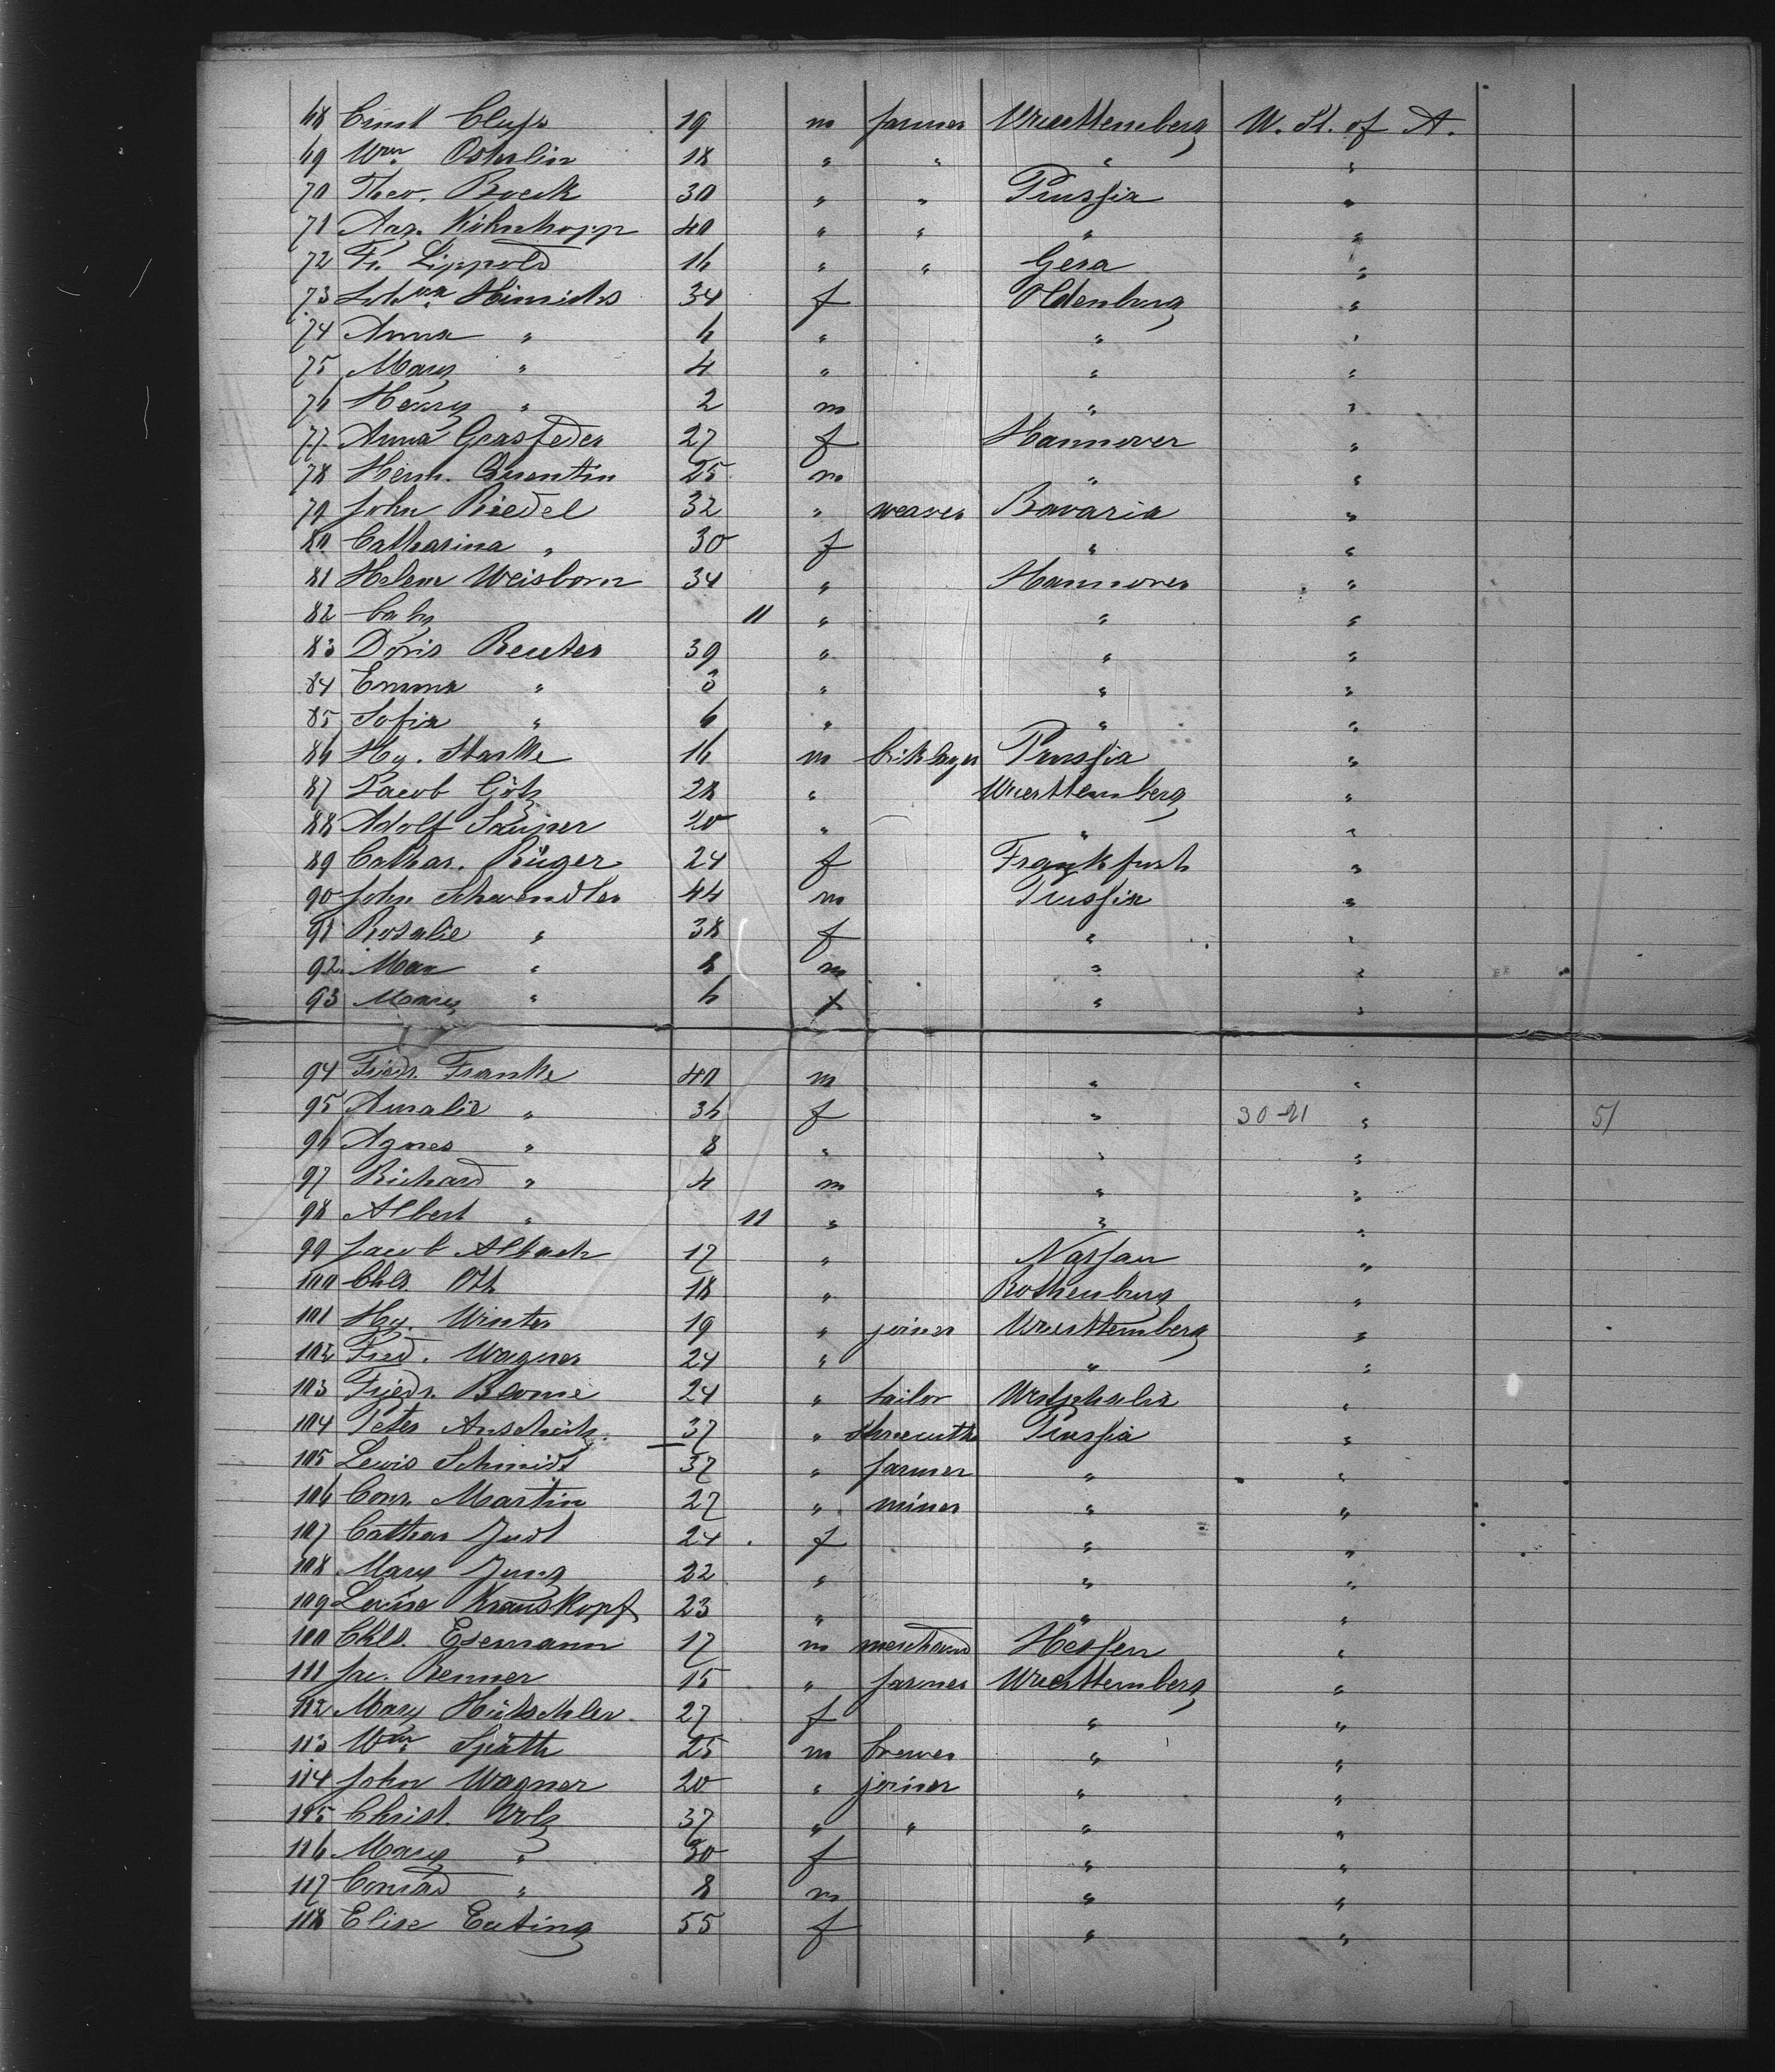 68 Ernst Cluss 19 m farmer Wuerttemberg U. St. of A.
69 Wm. Osterlin 18 " " " "
70 Theo. Boeck 30 " " Prussia "
71 Aug. Köhnkopp 40 " " " "
72 Fr. Lippold 16 " " Gera "
73 Hinrichs 34 f Oldenburg "
74 Anna " 6 " " "
75 Mary " 4 " " "
76 Henry " 2 m " "
77 Anna Grasfeder 27 f Hannover "
78 Herm. Quentin 25 m " "
79 John Riedel 32 " weaver Bavaria "
80 Catharina " 30 f " "
81 Helene Weisborn 34 " Hannover "
82 baby 11 " " "
83 Doris Reuter 39 " " "
84 Emma " 3 " " "
85 Sofia " 6 " " "
86 Hy. Starke 16 m briklayer Prussia "
87 Jacob Götz 28 " Wuerttemberg "
88 Adolf 20 " " "
89 Cathar. Rüger 24 f Frankfurt "
90 John Schwendler 44 m Prussia "
91 Rosalie " 38 f " "
92 Max " 8 m " "
93 Mary " 6 f " "
94 Friedr. Franke 40 m " "
95 Amalie " 36 f " 30-21 " 51
96 Agnes " 8 " " "
97 Richard " 4 m " "
98 Albert " 11 " " "
99 Jacob Albach 17 " Nassau "
100 Chls. Ott 18 " Rothenburg "
101 Hy. Winter 19 " joiner Wuerttemberg "
102 Fred. Wagner 24 " " "
103 Friedr. Blome 24 " tailor Westphalia "
104 Peter Anscheit 37 " Prussia "
105 Lewis Schmidt 37 " farmer " "
106 Conr. Martin 27 " miner " "
107 Cathar Judt 24 f " "
108 Mary Jung 22 " " "
109 Louise Krauskopf 23 " " "
100 Chls. Esemann 17 m merchand Hessen "
111 Jac. Renner 15 " farmer Wuerttemberg "
112 Mary Hütschler 27 f " "
113 Wm. Späth 25 m brewer " "
114 John Wagner 20 " joiner " "
115 Christ. Volz 37 " " " "
116 Mary " 30 f " "
117 Conrad " 8 m " "
118 Elise Euting 55 f " "